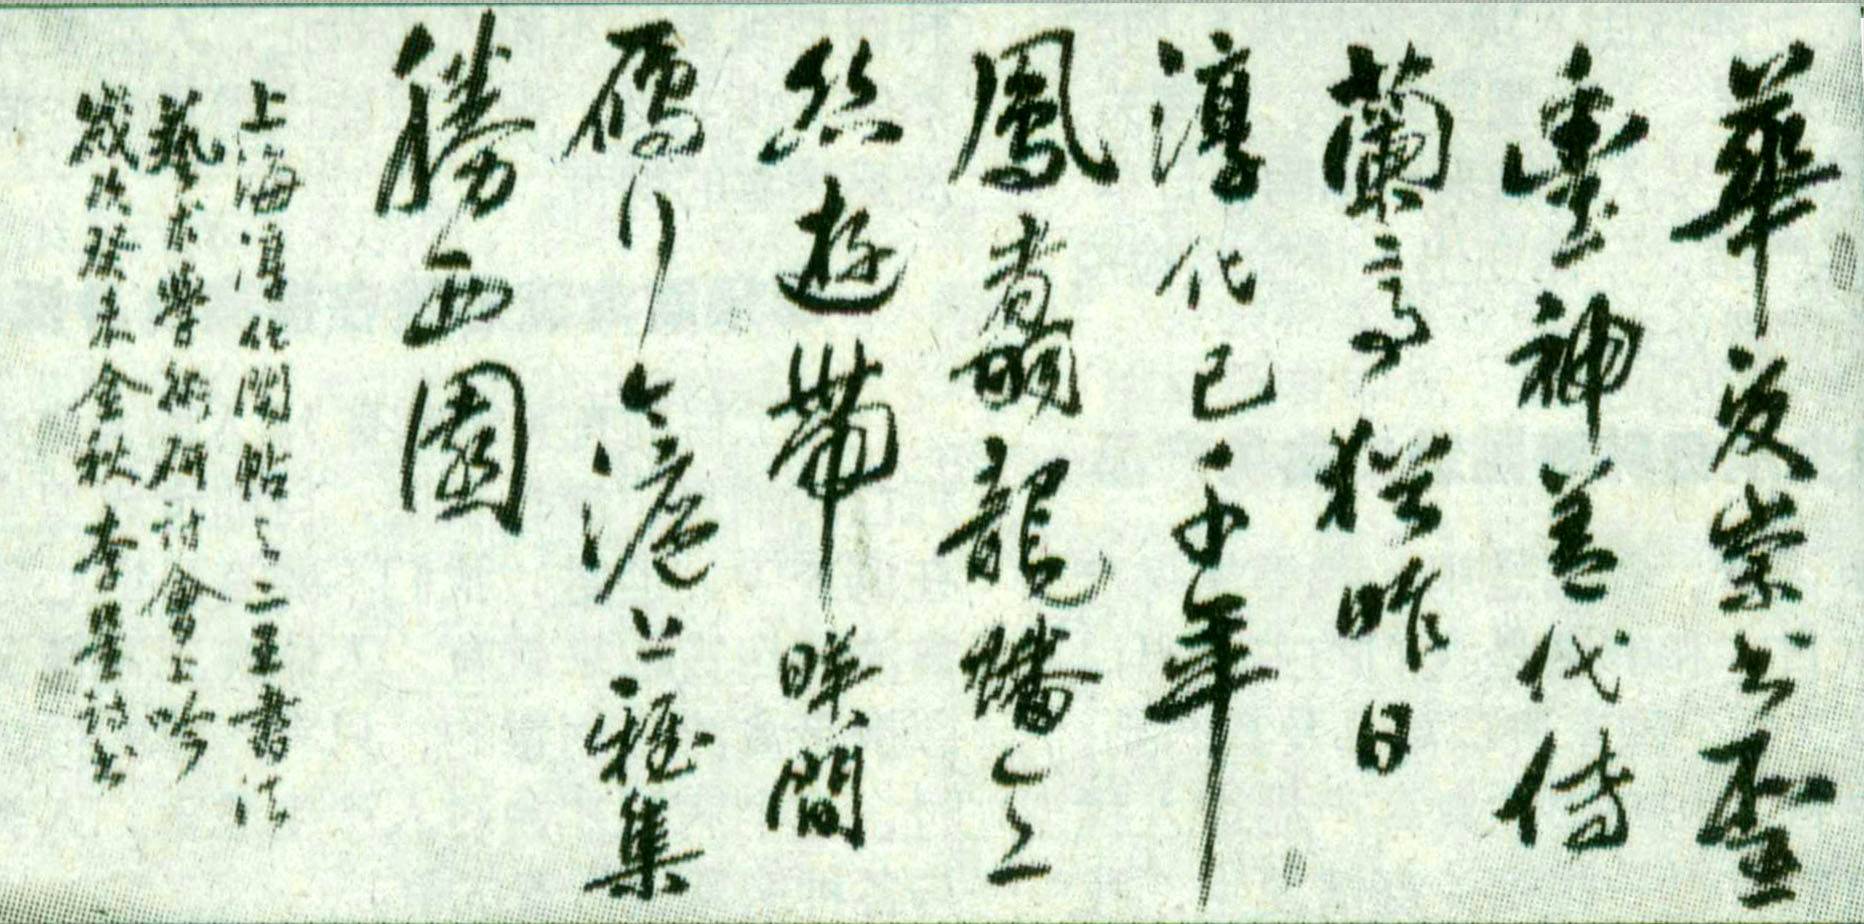 華夏崇書聖
神代傳
蘭亭猶昨日
淳化已千年
鳳翥龍蟠
絲遊帶映間
行滬上雅集
勝西園
上海淳化閣帖之二王書法
藝术學術研討會上吟
歲次癸未金秋李詩書